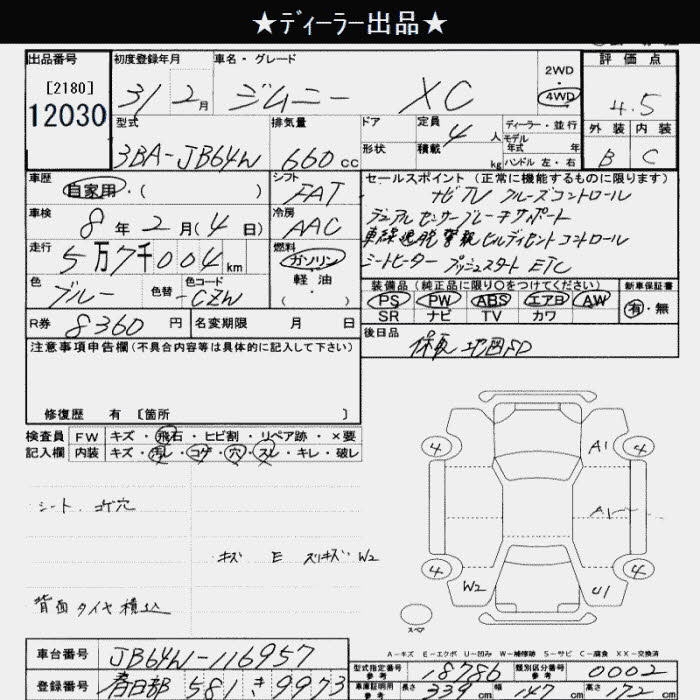 ★ディーラー出品★
出品番号 初度登録年月 車名・グレード 評価点
[2180] 12030 31 2月 ジムニー XC 2WD 4WD 4.5
型式 排気量 ドア 定員 4人 ディーラー・並行 外装 内装
3BA-JB64W 660cc 形状 積載 kg モデル年式 年 ハンドル 左・右 B C
車歴 自家用・( ) シフト FAT セールスポイント (正常に機能するものに限ります)
ナビTV クルーズコントロール
車検 8年2月(4日) 冷房 AAC デュアルセンサーブレーキサポート
車線逸脱警報 ヒルディセントコントロール
走行 5万7千004km 燃料 ガソリン・軽油・( ) シートヒーター プッシュスタート ETC
色 ブルー 色替 色コード CZW
装備品 (純正品に限り○をつけてください) 新車保証書
PS PW ABS エアB AW 有・無
SR ナビ TV カワ
R券 8360円 名変期限 月 日
後日品 保取 地図SD
注意事項申告欄(不具合内容等は具体的に記入して下さい)
修復歴 有 [箇所 ]
検査員 FW キズ・飛石・ヒビ割・リペア跡・×要
記入欄 内装 キズ・汚レ・コゲ・穴・スレ・キレ・破レ
4 A1 4
シート コゲ穴
A1
キズ E スリキズ W2
4 4
W2 U1
背面タイヤ積込
スペア
A-キズ E-エクボ U-凹み W-補修跡 S-サビ C-腐食 XX-交換済
車台番号 JB64W-116957
型式指定番号 参考 18786 類別区分番号 参考 0002
登録番号 春日部 581 き 9973
車庫証明用 参考 長さ 339cm 幅 147cm 高さ 172cm